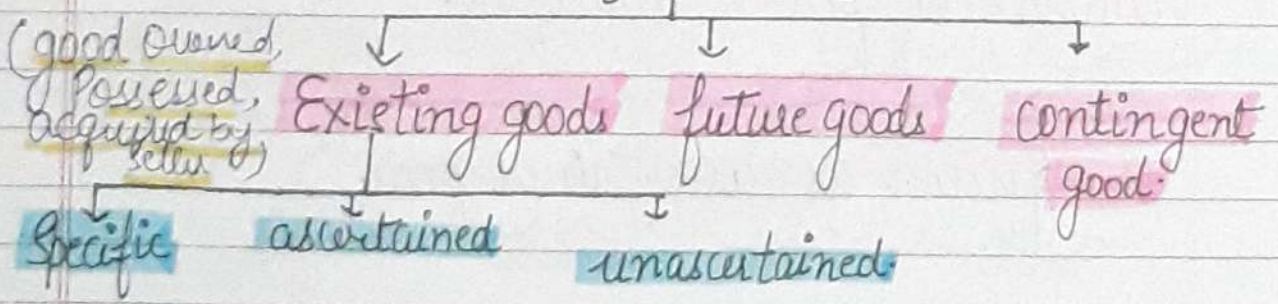 (good owned,
Possessed,
acquired by
seller)
Existing goods
future goods
contingent
good.
Specific
ascertained
unascertained.